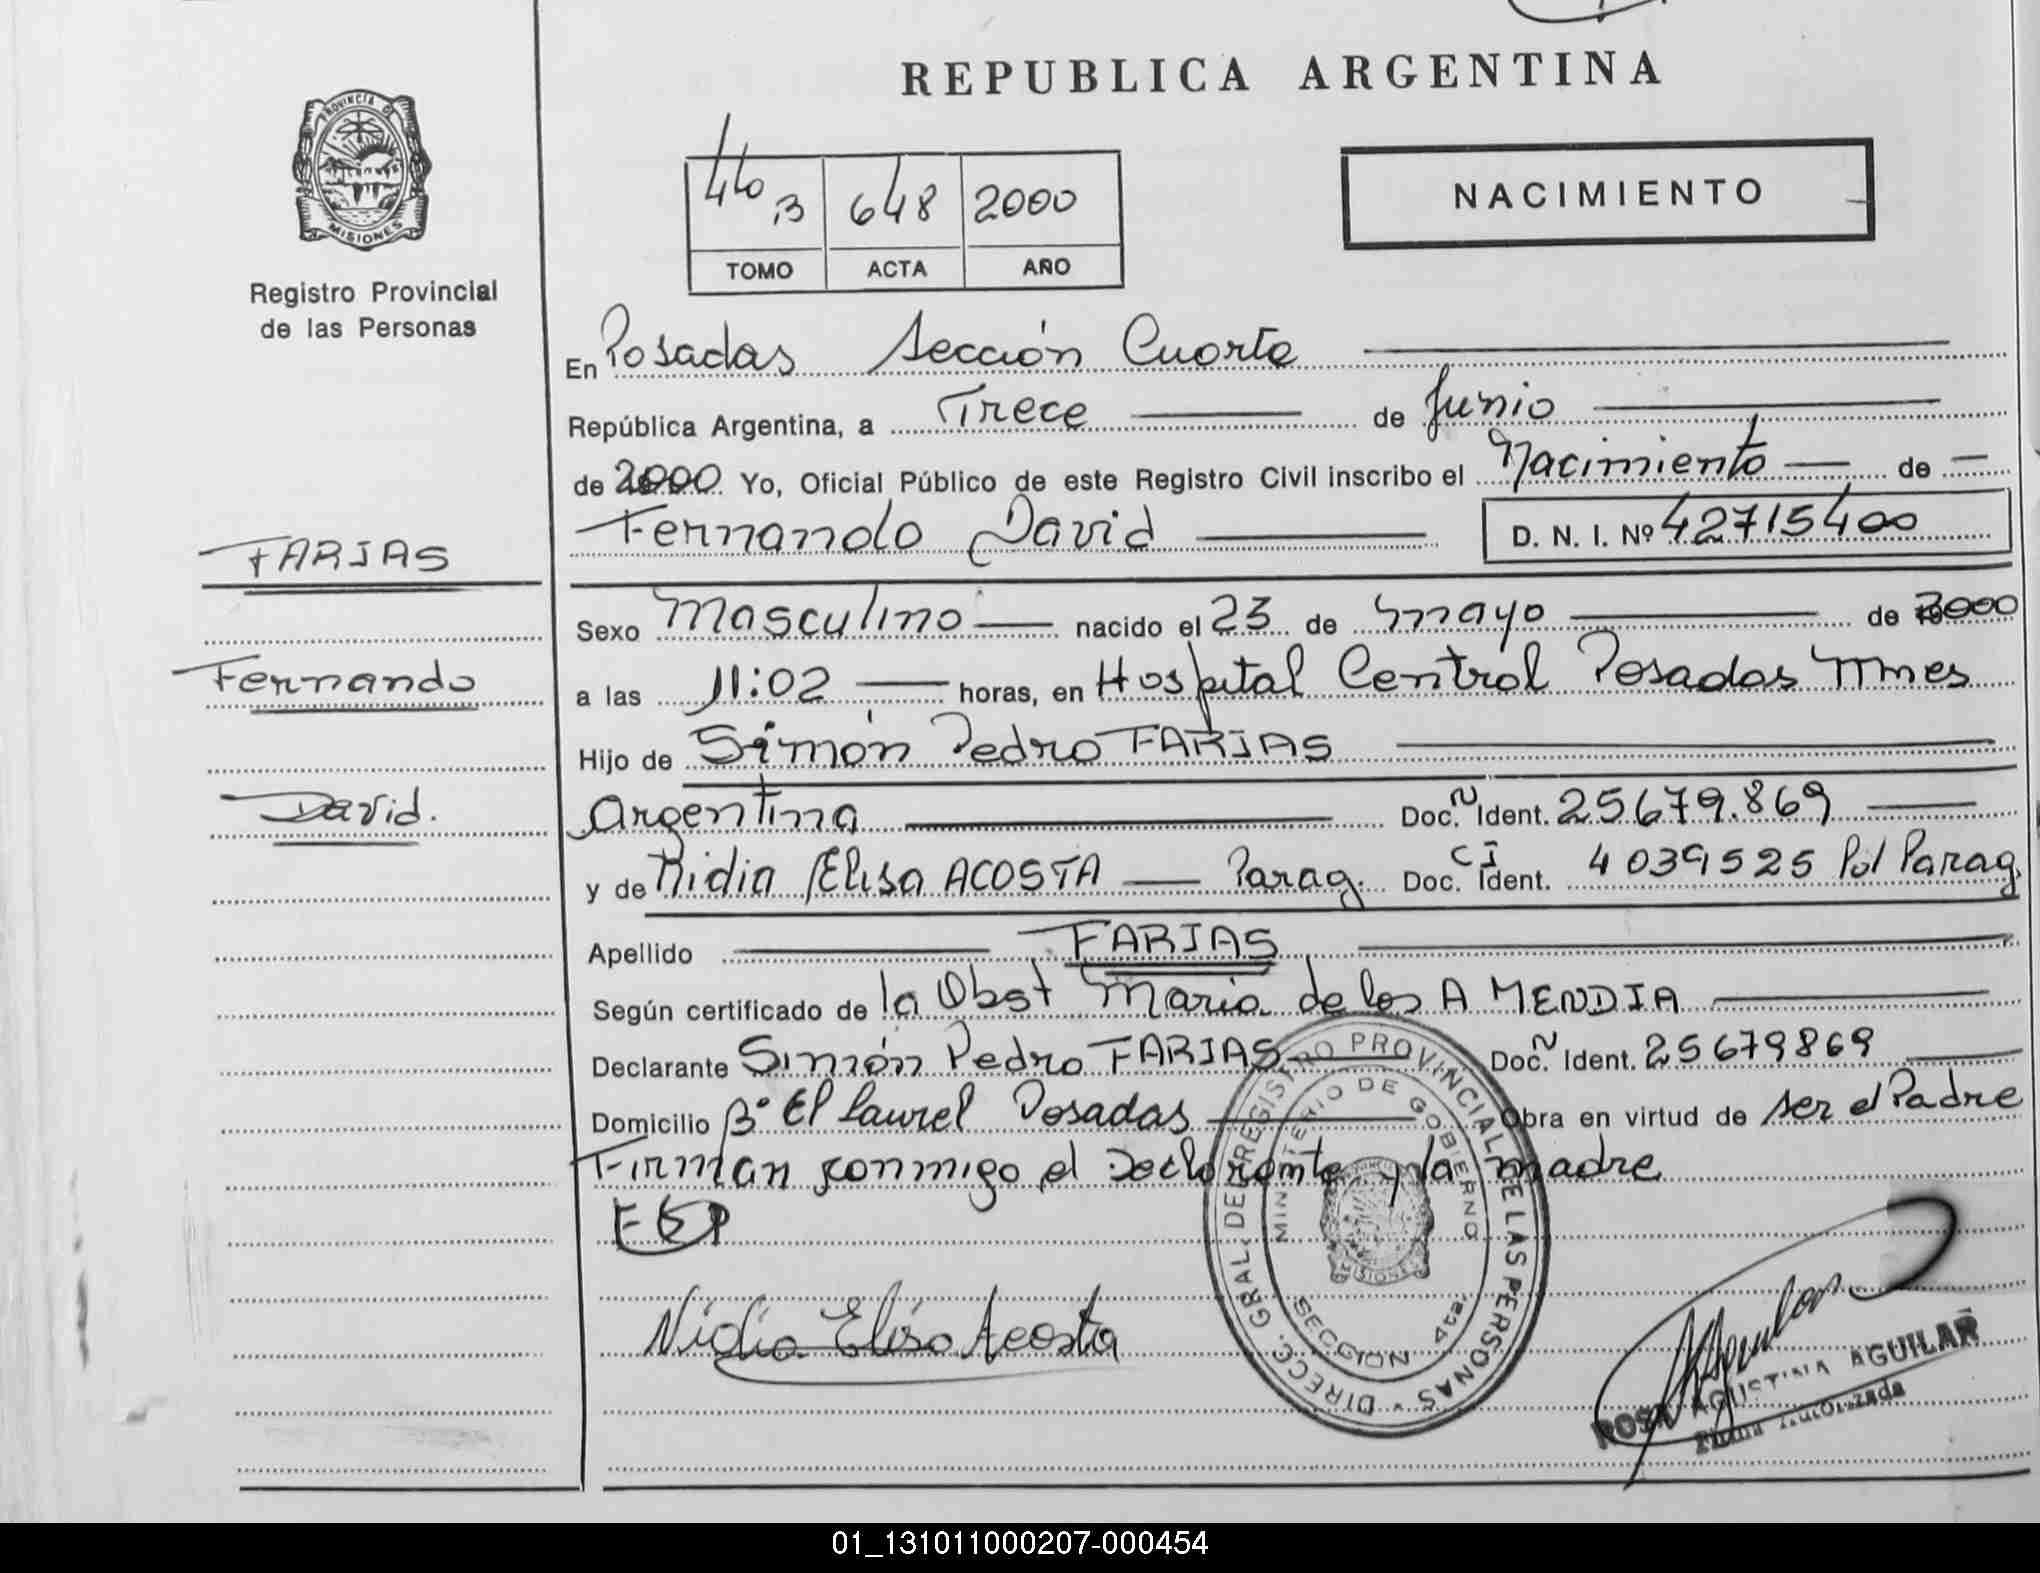 REPUBLICA ARGENTINA
PROVINCIA DE
MISIONES
Registro Provincial
de las Personas
440 B 648 2000
TOMO ACTA AÑO
NACIMIENTO
En Posadas Sección Cuarta
República Argentina, a Trece de Junio
de 2000 Yo, Oficial Público de este Registro Civil inscribo el Nacimiento de
Fernando David D. N. I. Nº 42715400
FARIAS
Fernando
David.
Sexo Masculino nacido el 23 de mayo de 2000
a las 11:02 horas, en Hospital Central Posadas Mnes
Hijo de Simón Pedro FARIAS
Argentina Doc. N Ident. 25679.869
y de Nidia Elisa ACOSTA Parag. Doc. CI Ident. 4039525 Pol Parag.
Apellido FARIAS
Según certificado de la Obst Maria de los A MENDIA
Declarante Simón Pedro FARIAS Doc. N Ident. 25679869
Domicilio Bº El laurel Posadas Obra en virtud de ser el Padre
Firman conmigo el Declarante y la madre
Nidia Elisa Acosta
DIRECC. GRAL. DEL REGISTRO PROVINCIAL DE LAS PERSONAS
MINISTERIO DE GOBIERNO
MISIONES
SECCION 4ta.
Aguilar
ROSA AGUSTINA AGUILAR
Firma Autorizada
01_131011000207-000454